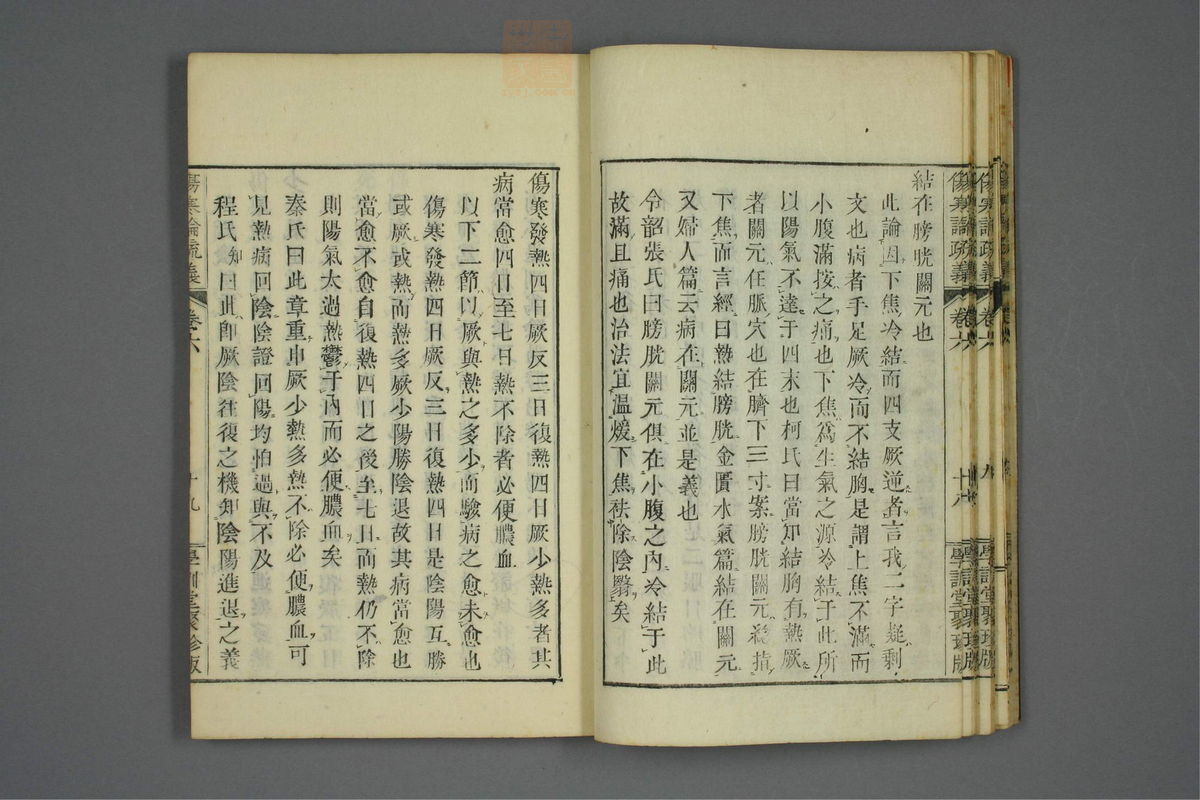 結在膀胱關元也
此論因下焦冷結而四支厥逆者言我二字疑剩
文也病者手足厥冷而不結胸是謂上焦不滿而
小腹滿按之痛也下焦爲生氣之源冷結于此所
以陽氣不達于四末也柯氏曰當知結胸有熱厥
者關元任脈穴也在臍下三寸案膀胱關元總指
下焦而言經曰熱結膀胱金匱水氣篇結在關元
又婦人篇云病在關元並是義也
令韶張氏曰膀胱關元俱在小腹之內冷結于此
故滿且痛也治法宜溫煖下焦祛除陰翳矣
傷寒發熱四日厥反三日復熱四日厥少熱多者其
病當愈四日至七日熱不除者必便膿血
以下二節以厥與熱之多少而驗病之愈未愈也
傷寒發熱四日厥反三日復熱四日是陰陽互勝
或厥或熱而熱多厥少陽勝陰退故其病當愈也
當愈不愈自復熱四日之後至七日而熱仍不除
則陽氣太過熱鬱于內而必便膿血矣
秦氏曰此章重申厥少熱多熱不除必便膿血可
見熱病回陰陰證回陽均怕過與不及
程氏知曰此卽厥陰往復之機知陰陽進退之義
傷寒論疏義 卷六 十九 學訓堂聚珍版